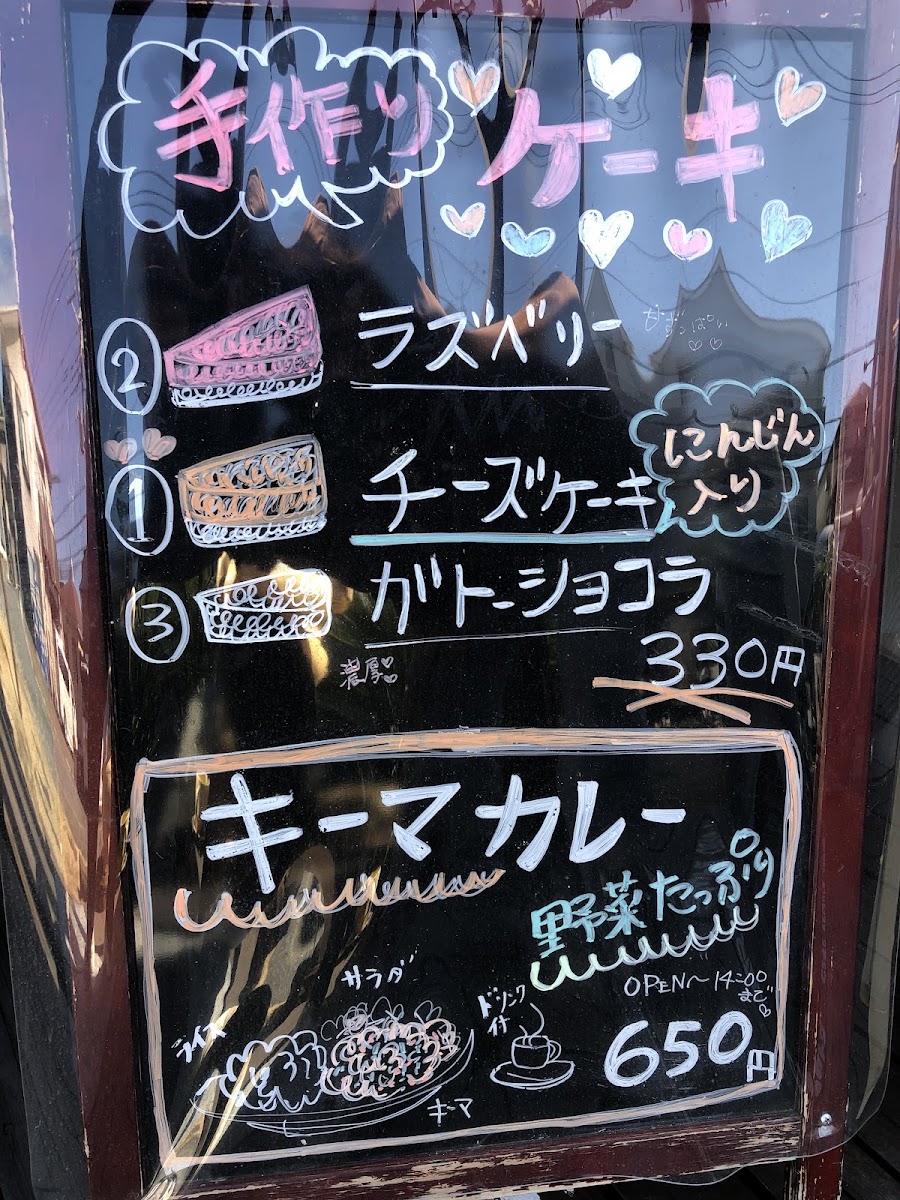 手作り ケーキ
② ラズベリー
① チーズケーキ
にんじん
入り
③ ガトーショコラ
濃厚
330円
キーマカレー
野菜たっぷり
OPEN〜14:00
まで
サラダ
ライス
キーマ
ドリンク
付
650円